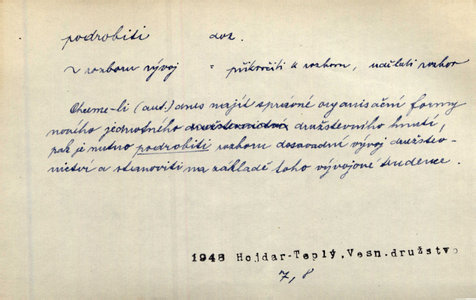 podrobiti dok.
z rozboru vývoj " přikročiti k rozboru, udělati rozbor
Chceme-li (aut.) dnes najít správné organisační formy
nového jednotného družstevního hnutí,
pak je nutno podrobiti rozboru dosavadní vývoj družstev-
nictví a stanoviti na základě toho vývojové tendence.
1948 Hojdar-Teplý, Vesn. družstvo
7, 8